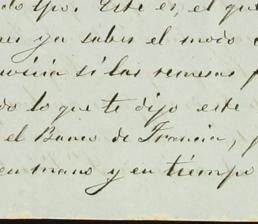 do tpo. Este es, el que
nes ya sabes el modo
si las remesas
do lo que te dijo este
el Banco de Francia,
en mano y en tiempo